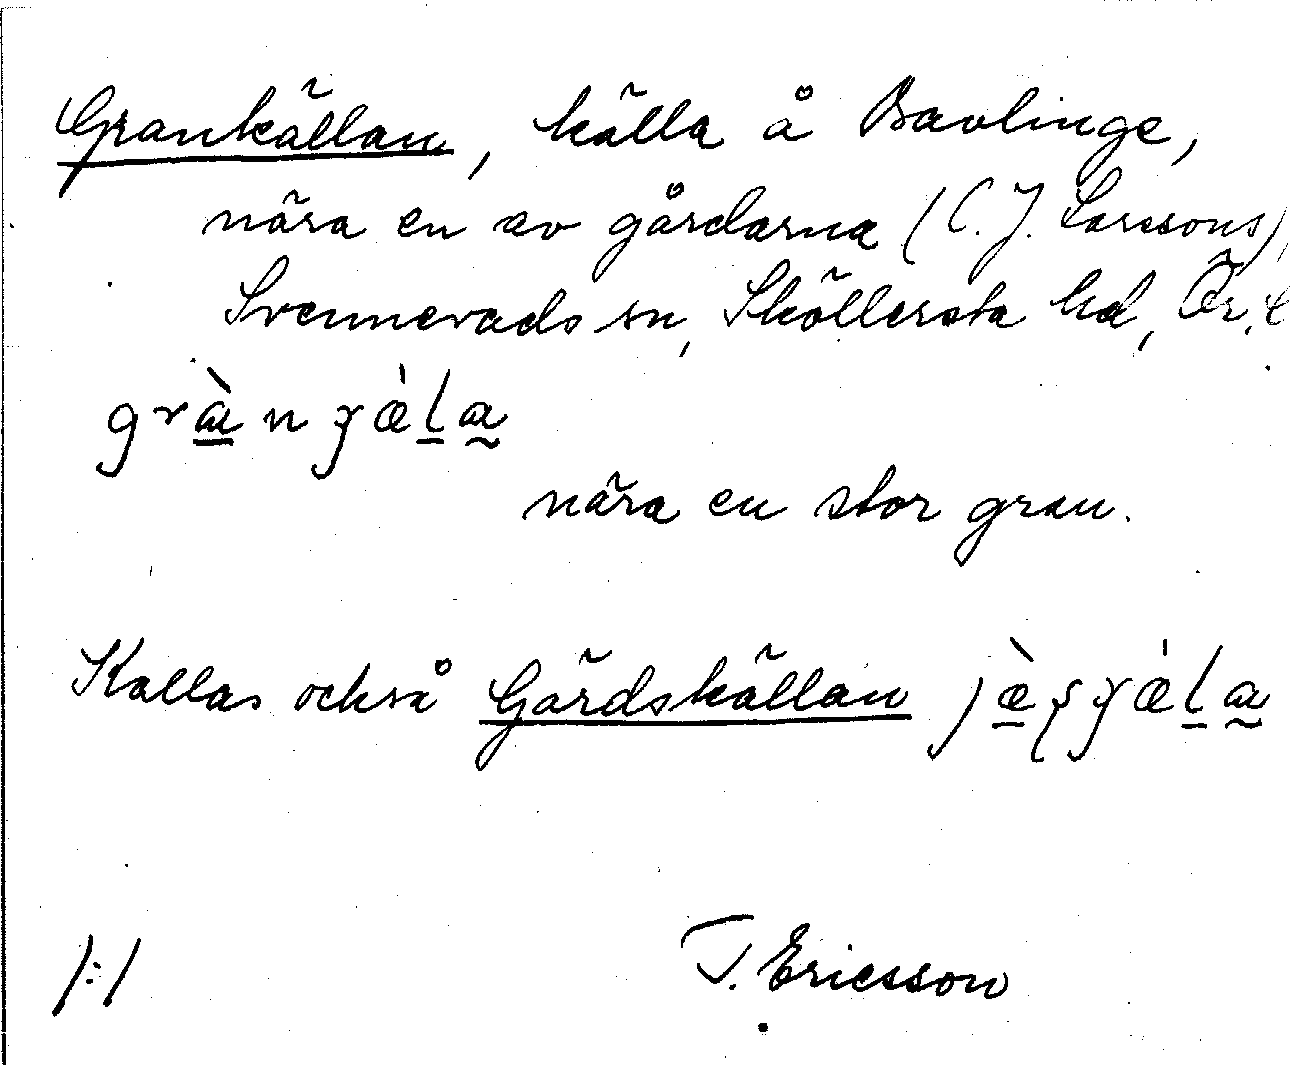 Grankällan, källa å Bavlinge,
nära en av gårdarna (C. J. Larssons),
Svennevads sn, Sköllersta hd, Ör. l
nära en stor gran.
Kallas också Gärdskällan
/:/
T. Ericsson